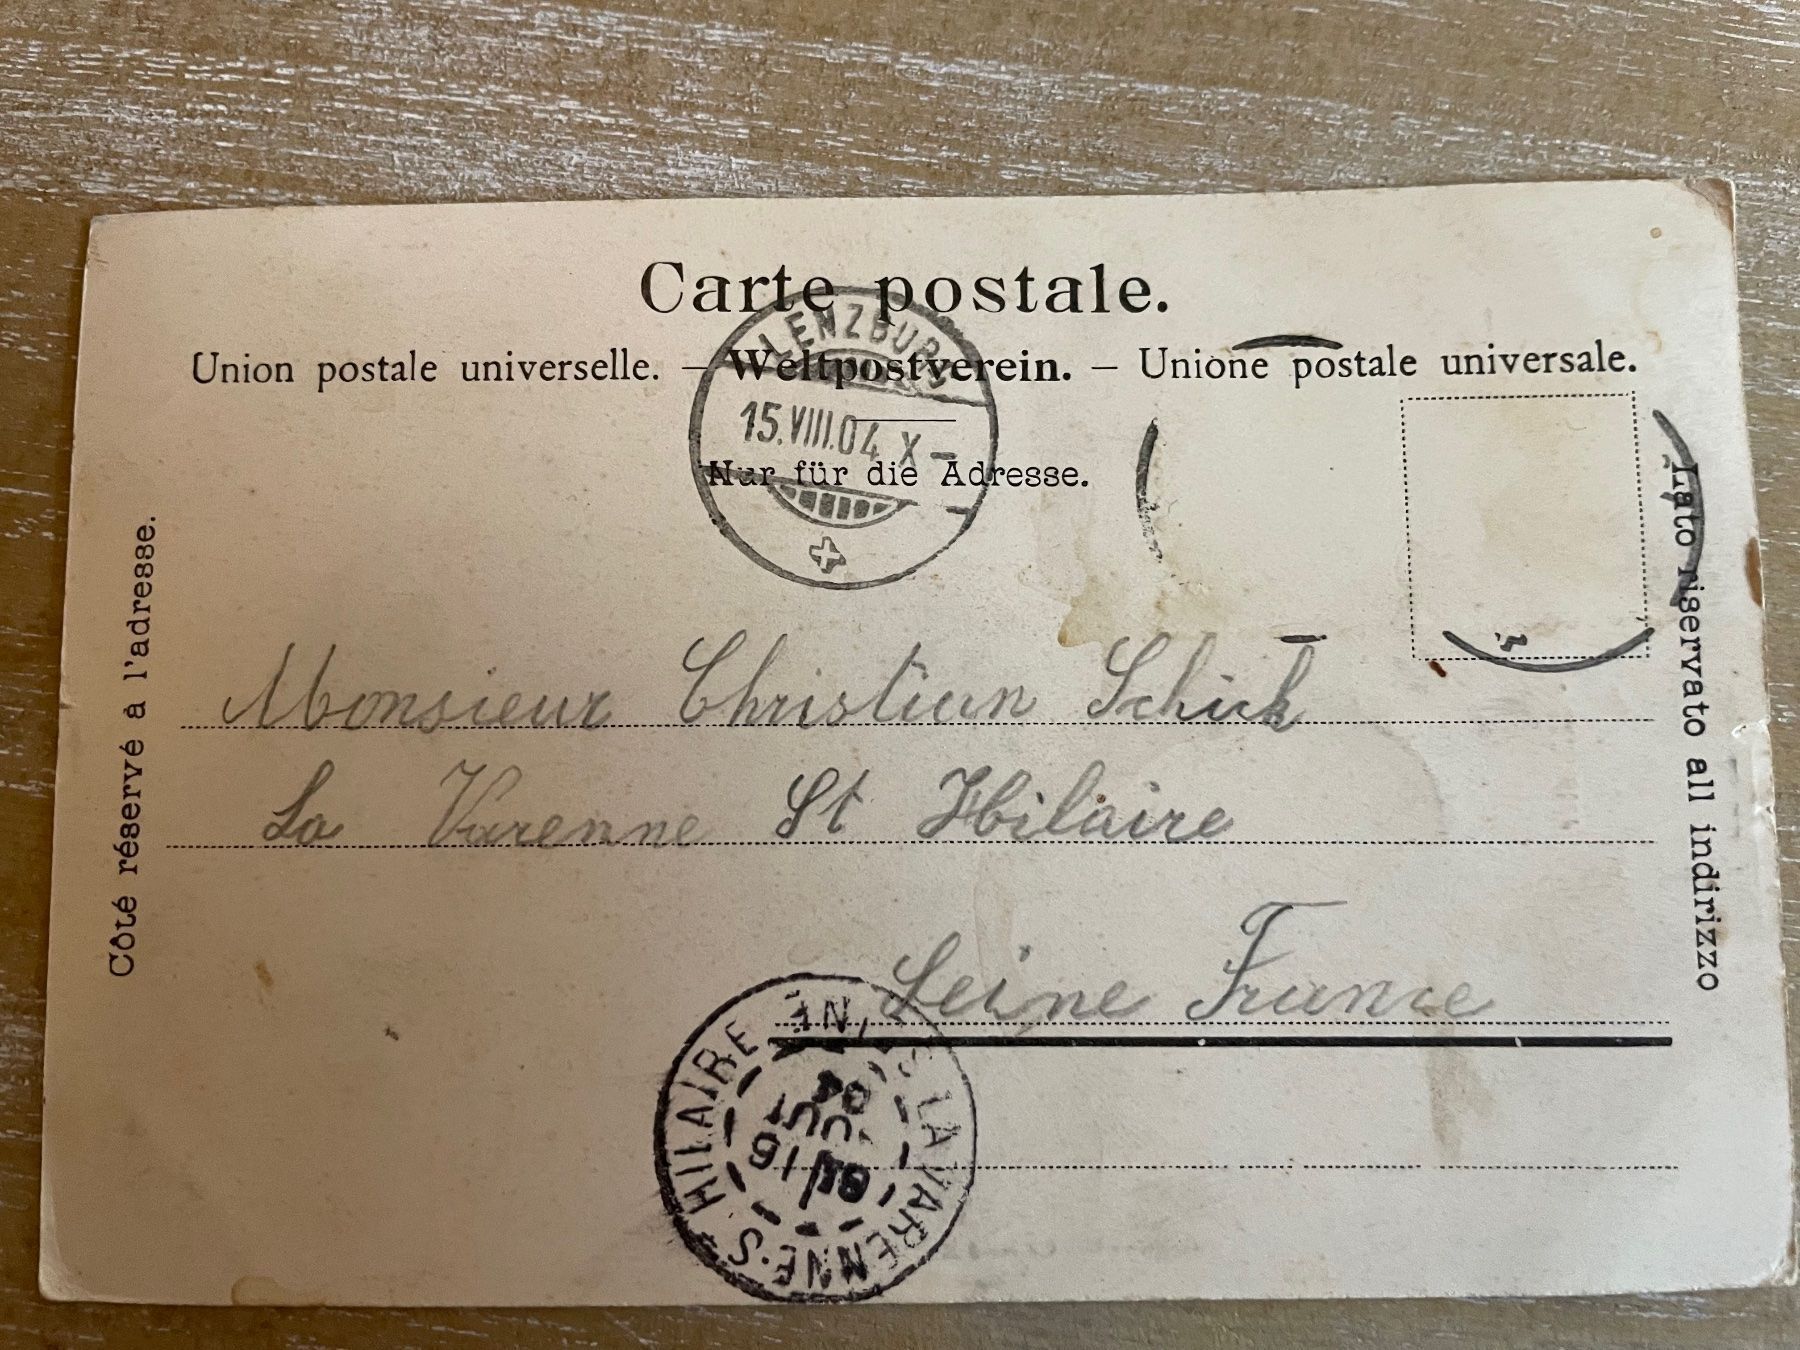 Carte postale.
Union postale universelle. — Weltpostverein. — Unione postale universale.
LENZBURG
15.VIII.04 X –
Nur für die Adresse.
Côté réservé à l'adresse.
Lato riservato all indirizzo
Monsieur Christian Schick
La Varenne St Hilaire
Seine France
LA VARENNE-St HILAIRE
16
04